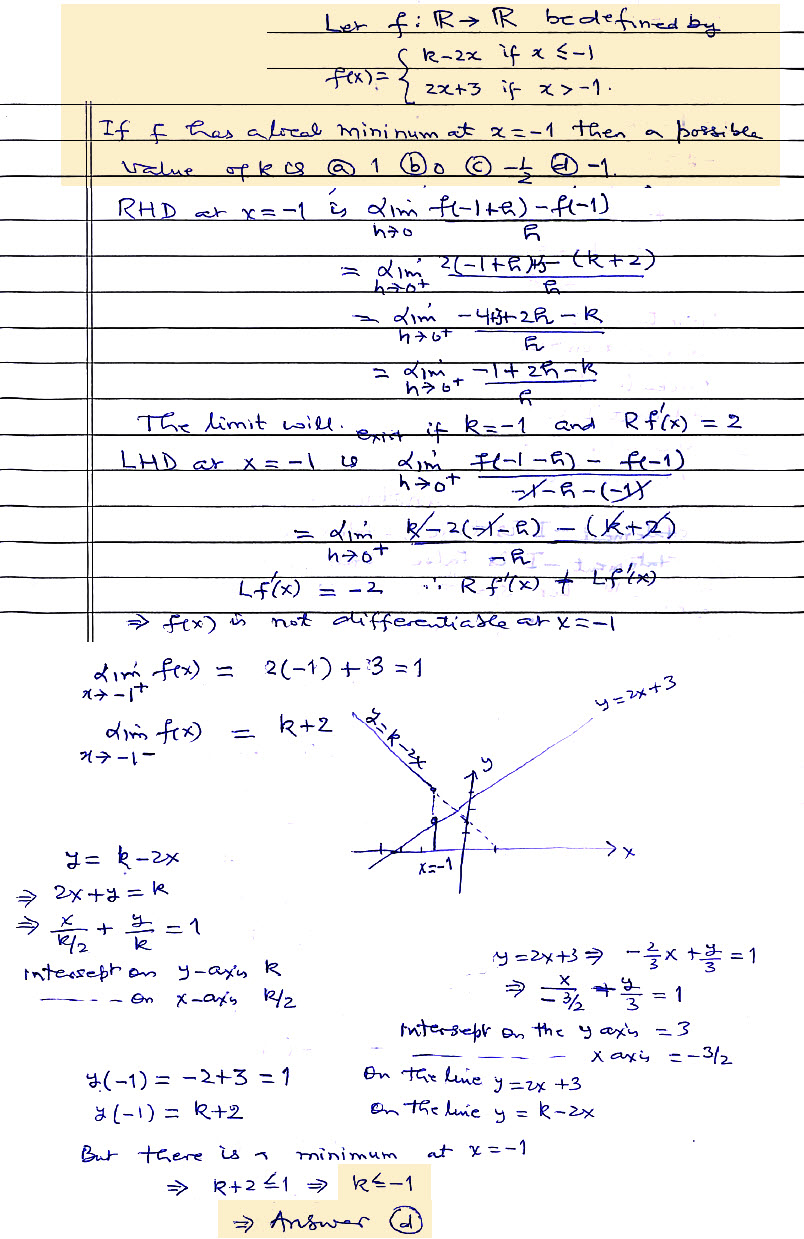 Let f : ℝ → ℝ be defined by
f(x) = { k-2x if x ≤ -1
2x+3 if x > -1.
If f has a local mininum at x = -1 then a possible
value of k is ⓐ 1 ⓑ 0 ⓒ -1/2 ⓓ -1.
RHD at x = -1 is Lim h→0 (f(-1+h) - f(-1))/h
= Lim h→0+ (2(-1+h)+3 - (k+2))/h
= Lim h→0+ (-4+3+2h-k)/h
= Lim h→0+ (-1+2h-k)/h
The limit will exist if k = -1 and Rf'(x) = 2
LHD at x = -1 is Lim h→0+ (f(-1-h) - f(-1))/(-1-h-(-1))
= Lim h→0+ (k-2(-1-h) - (k+2))/(-h)
Lf'(x) = -2 ∴ Rf'(x) ≠ Lf'(x)
⇒ f(x) is not differentiable at x = -1
Lim x→-1+ f(x) = 2(-1)+3 = 1
y = 2x+3
Lim x→-1- f(x) = k+2
y = k-2x
y
x
x=-1
y = k-2x
⇒ 2x+y = k
⇒ x/(k/2) + y/k = 1
intersept on y-axis k
------ on x-axis k/2
y = 2x+3 ⇒ -2/3 x + y/3 = 1
⇒ x/(-3/2) + y/3 = 1
intersept on the y axis = 3
------------ x axis = -3/2
y(-1) = -2+3 = 1 On the line y = 2x+3
y(-1) = k+2 On the line y = k-2x
But there is a minimum at x = -1
⇒ k+2 ≤ 1 ⇒ k ≤ -1
⇒ Answer ⓓ